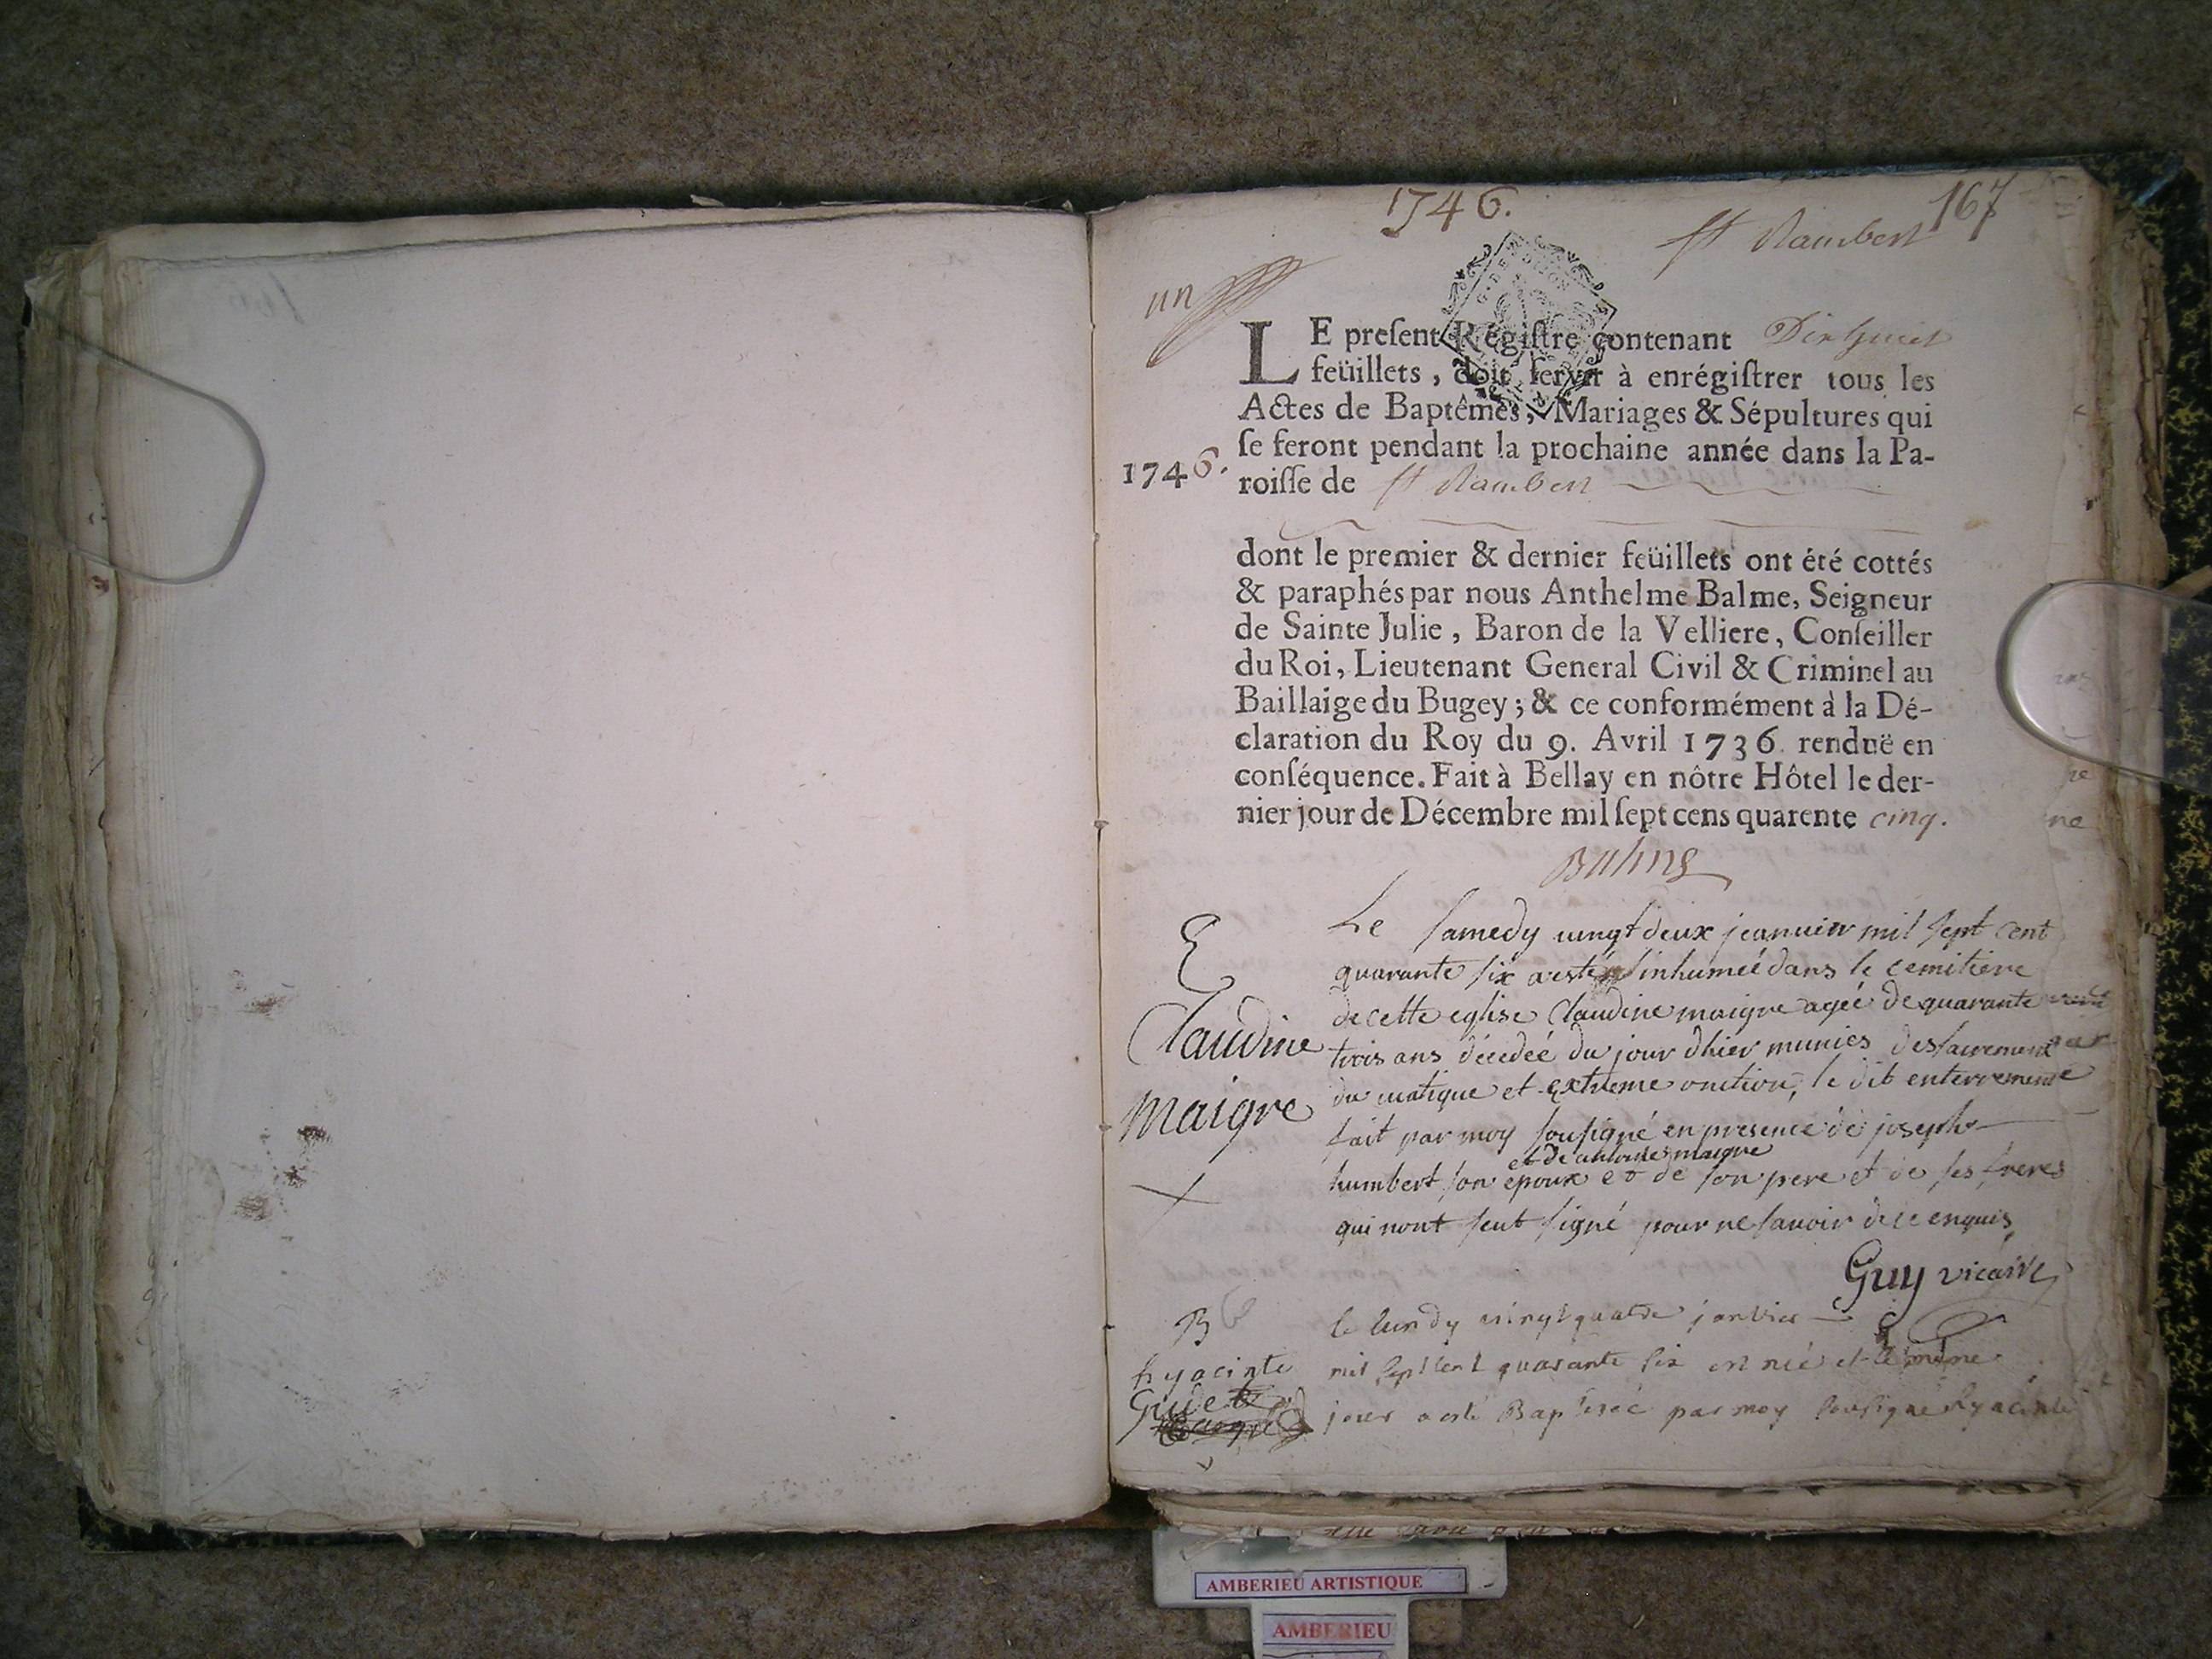 1746.
167
St Rambert
un
LE preſent Régiſtre contenant Dix huict
feüillets, doit ſervir à enrégiſtrer tous les
Actes de Baptêmes, Mariages & Sépultures qui
ſe feront pendant la prochaine année dans la Pa-
1746.
roiſſe de St Rambert
dont le premier & dernier feüillets ont été cottés
& paraphés par nous Anthelme Balme, Seigneur
de Sainte Julie, Baron de la Velliere, Conſeiller
du Roi, Lieutenant General Civil & Criminel au
Baillaige du Bugey; & ce conformément à la Dé-
claration du Roy du 9. Avril 1736. renduë en
conſéquence. Fait à Bellay en nôtre Hôtel le der-
nier jour de Décembre mil ſept cens quarente cinq.
Balme
E
Claudine
maigre
Le samedy vingt deux jeanvier mil sept cent
quarante six a esté inhumeé dans le cemitiere
de cette eglise Claudine maigre ageé de quarante
trois ans décedeé du jour dhier munies des sacrement
du viatique et extreme onction, le dit enterrement
fait par moy sousigné en presence de joseph
et de antoine maigre
humbert son epoux et de son pere et de ses freres
qui nont seut signé pour ne savoir de ce enquis
Guy vicaire
B
hyacinte
Gudet
le lundy vingt quatre janvier
mil sept cent quarante six est née et le même
jour a esté Baptisée par moy sousigné hyacinte
AMBERIEU ARTISTIQUE
AMBERIEU